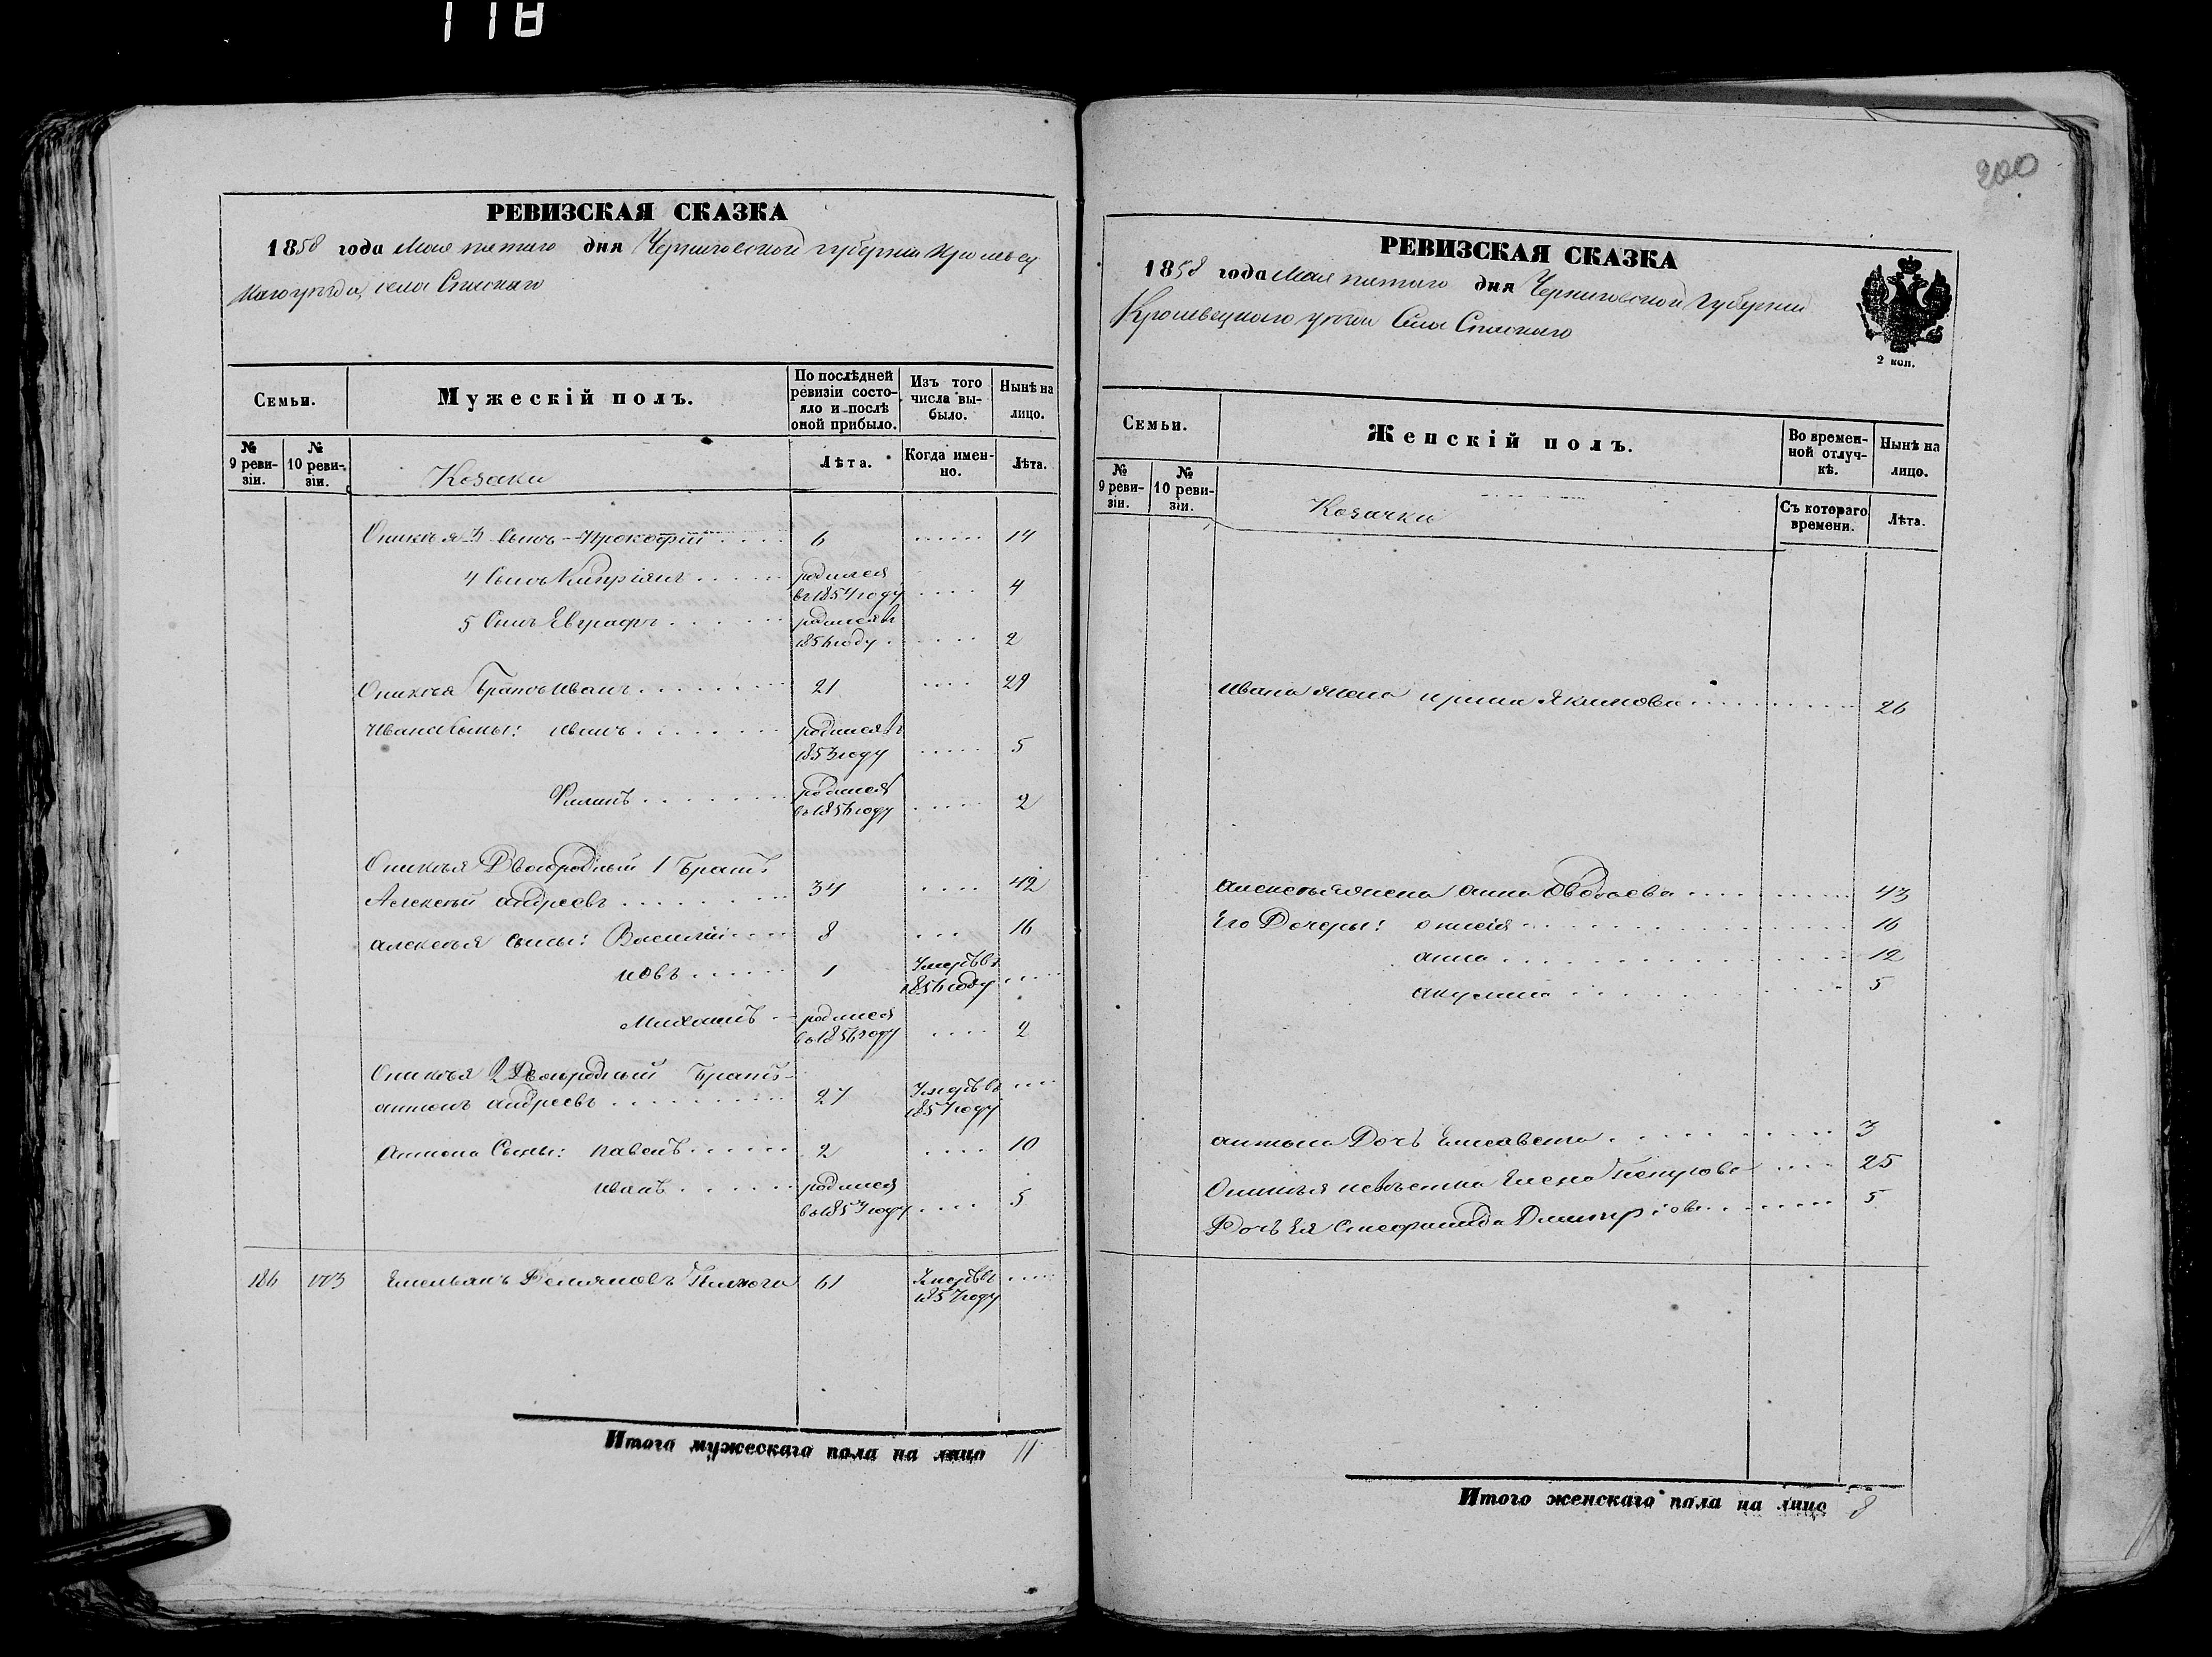 118
200
РЕВИЗСКАЯ СКАЗКА
1858 года Мая пятаго дня Черниговской губернии Кролевец
каго уезда, села Спаскаго
Семьи.
Мужескій полъ.
По послѣдней ревизіи состояло и послѣ оной прибыло.
Изъ того числа выбыло.
Нынѣ на лицо.
№ 9 ревизіи.
№ 10 ревизіи.
Козаки
Лѣта.
Когда именно.
Лѣта.
3 Сынъ Прокофій 6 14
4 Сынъ Кипріянъ родился въ 1854 году 4
5 Сынъ Евграфъ родился въ 1856 году 2
Братъ Иванъ 21 29
Ивана Сыны: Иванъ родился въ 1853 году 5
Филипъ родился въ 1856 году 2
Двоюродный 1 Братъ
Алексей Андреевъ 34 42
Алексея Сыны: Василій 8 16
Иовъ 1 Умеръ въ 1856 году
Михаилъ родился въ 1856 году 2
2 Двоюродный Братъ
Антонъ Андреевъ 27 Умеръ въ 1857 году
Антона Сыны: Павелъ 2 10
Иванъ родился въ году 5
186 173 Емельянъ Демяновъ 61 Умеръ въ 1857 году
Итого мужескаго пола на лицо 11
РЕВИЗСКАЯ СКАЗКА
1858 года Мая пятаго дня Черниговской Губернии
Кролевецкаго уезда Села Спаскаго
2 коп.
Семьи.
Женскій полъ.
Во временной отлучкѣ.
Нынѣ на лицо.
№ 9 ревизіи.
№ 10 ревизіи.
Козачки
Съ котораго времени.
Лѣта.
Ивана жена Ирина Якимова 26
Алексея жена Анна 43
Его Дочеры: 16
Анна 12
Акулина 5
Антона Дочь Елисавета 3
невестка Елена 25
Дочь Ея Стефанида Дмитріова 5
Итого женскаго пола на лицо 8